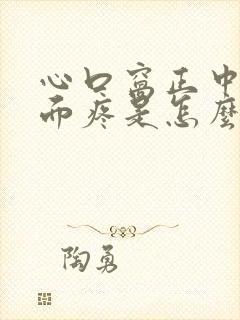 心口窝正中
而疼是怎麼
陶勇